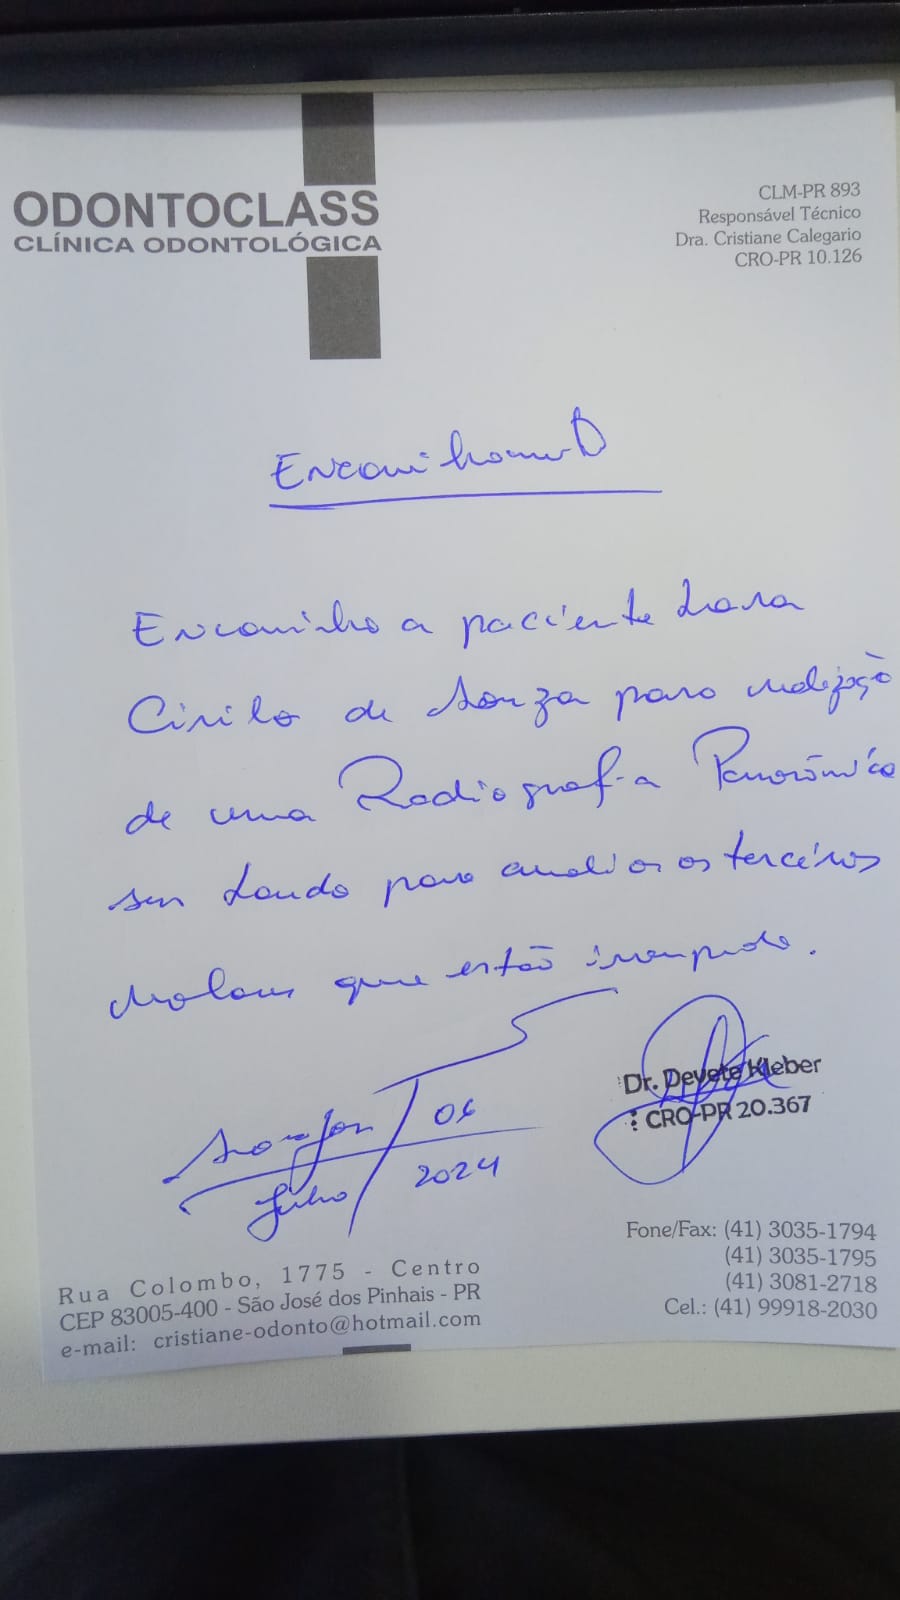 ODONTOCLASS
CLÍNICA ODONTOLÓGICA
CLM-PR 893
Responsável Técnico
Dra. Cristiane Calegario
CRO-PR 10.126
Encaminhamento
Encaminho a paciente Lara
Cirilo de Souza para realização
de uma Radiografia Panorâmica
sem Laudo para analisar os terceiros
Molares que estão irrompendo.
06
Julho 2024
Dr. Devete Kleber
CRO-PR 20.367
Rua Colombo, 1775 - Centro
CEP 83005-400 - São José dos Pinhais - PR
e-mail: cristiane-odonto@hotmail.com
Fone/Fax: (41) 3035-1794
(41) 3035-1795
(41) 3081-2718
Cel.: (41) 99918-2030